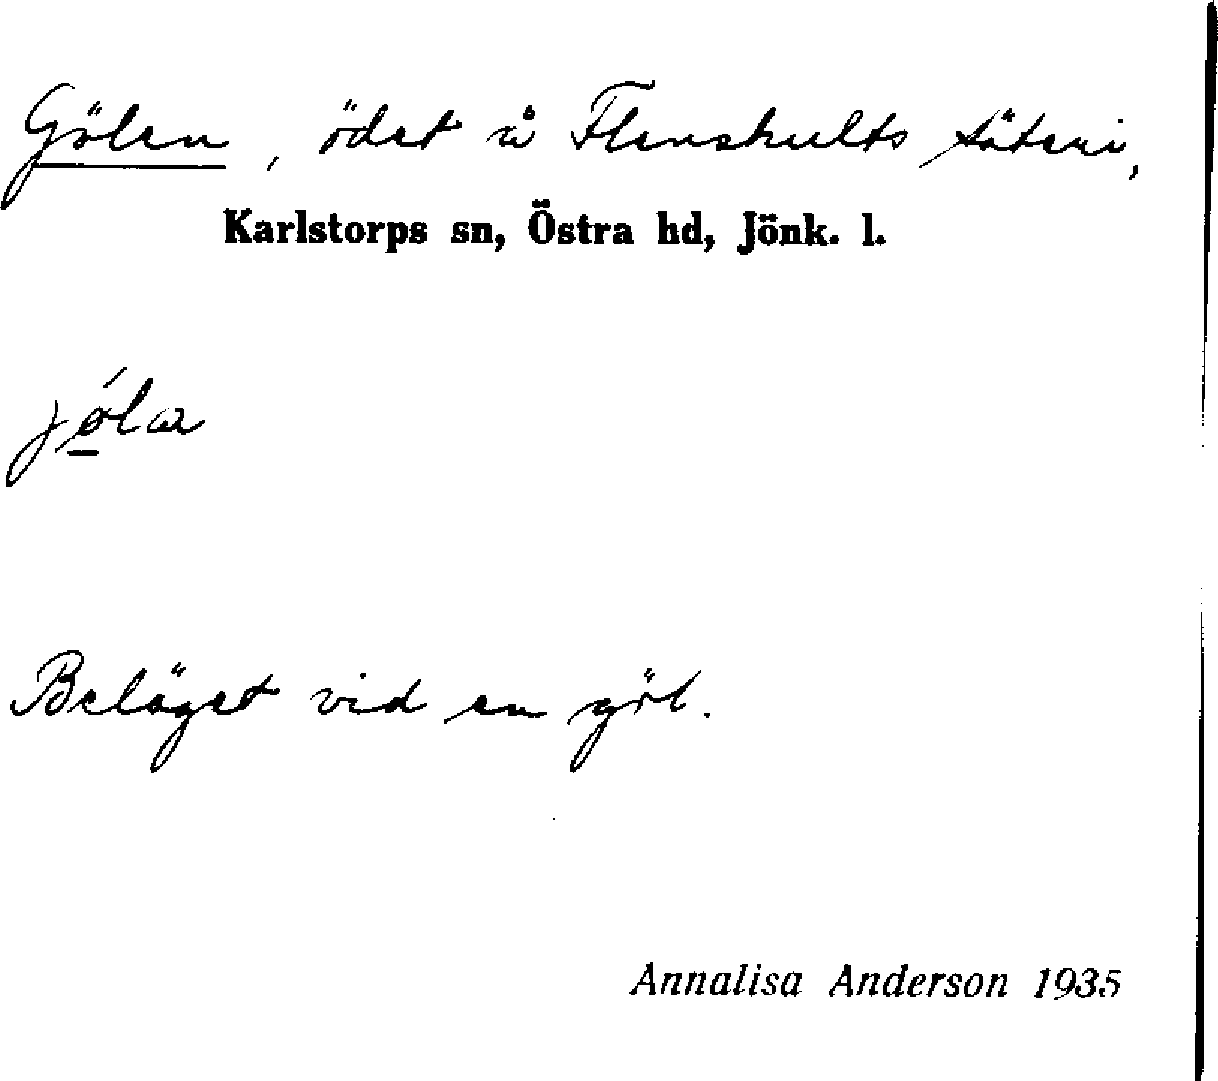 Gölen, ödet å Flenshults säteri,
Karlstorps sn, Östra hd, Jönk. l.
Beläget vid en göl.
Annalisa Anderson 1935